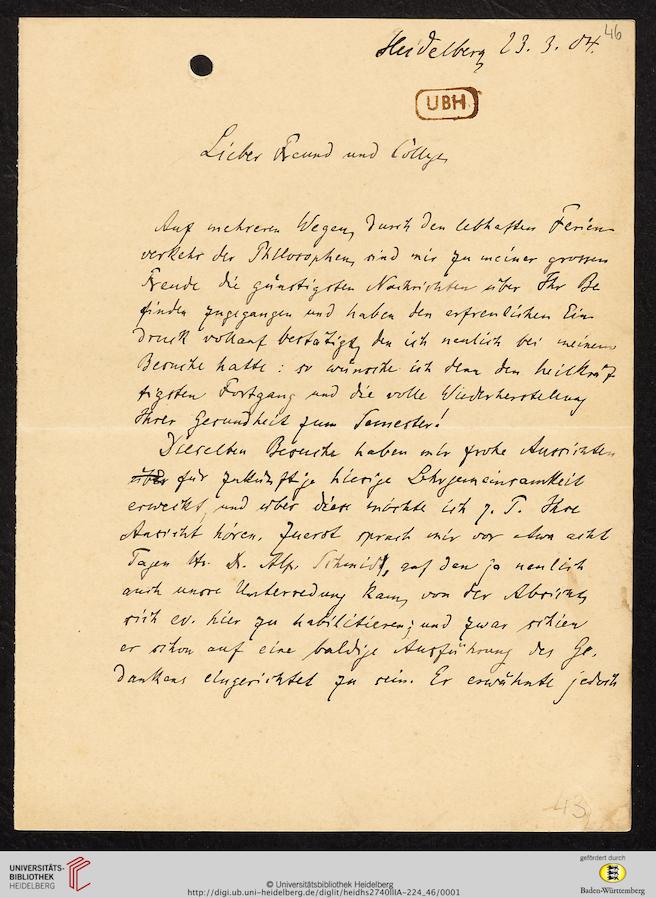 46
Heidelberg 23. 3. 04.
UBH
Lieber Freund und College
Auf mehreren Wegen, durch den lebhaften Ferien-
verkehr der Philosophen, sind mir zu meiner grossen
Freude die günstigsten Nachrichten über Ihr Be
finden zugegangen und haben den erfreulichen Ein-
druck vollauf bestätigt, den ich neulich bei meinem
Besuche hatte: so wünsche ich denn den heilkräf
tigsten Fortgang und die volle Wiederherstellung
Ihrer Gesundheit zum Semester!
Dieselben Besuche haben mir frohe Aussichten
über für zukünftige hiesige Lehrgemeinsamkeit
erweckt, und über diese möchte ich z. T. Ihre
Ansicht hören. Zuerst sprach mir vor etwa acht
Tagen Hr. Dr. Alfr. Schmidt, auf den ja neulich
auch unsre Unterredung kam, von der Absicht,
sich ev. hier zu habilitieren; und zwar schien
er schon auf eine baldige Ausführung des Ge-
dankens eingerichtet zu sein. Er erwähnte jedoch
43
UNIVERSITÄTS-
BIBLIOTHEK
HEIDELBERG
© Universitätsbibliothek Heidelberg
http://digi.ub.uni-heidelberg.de/diglit/heidhs2740IIIA-224_46/0001
gefördert durch
Baden-Württemberg